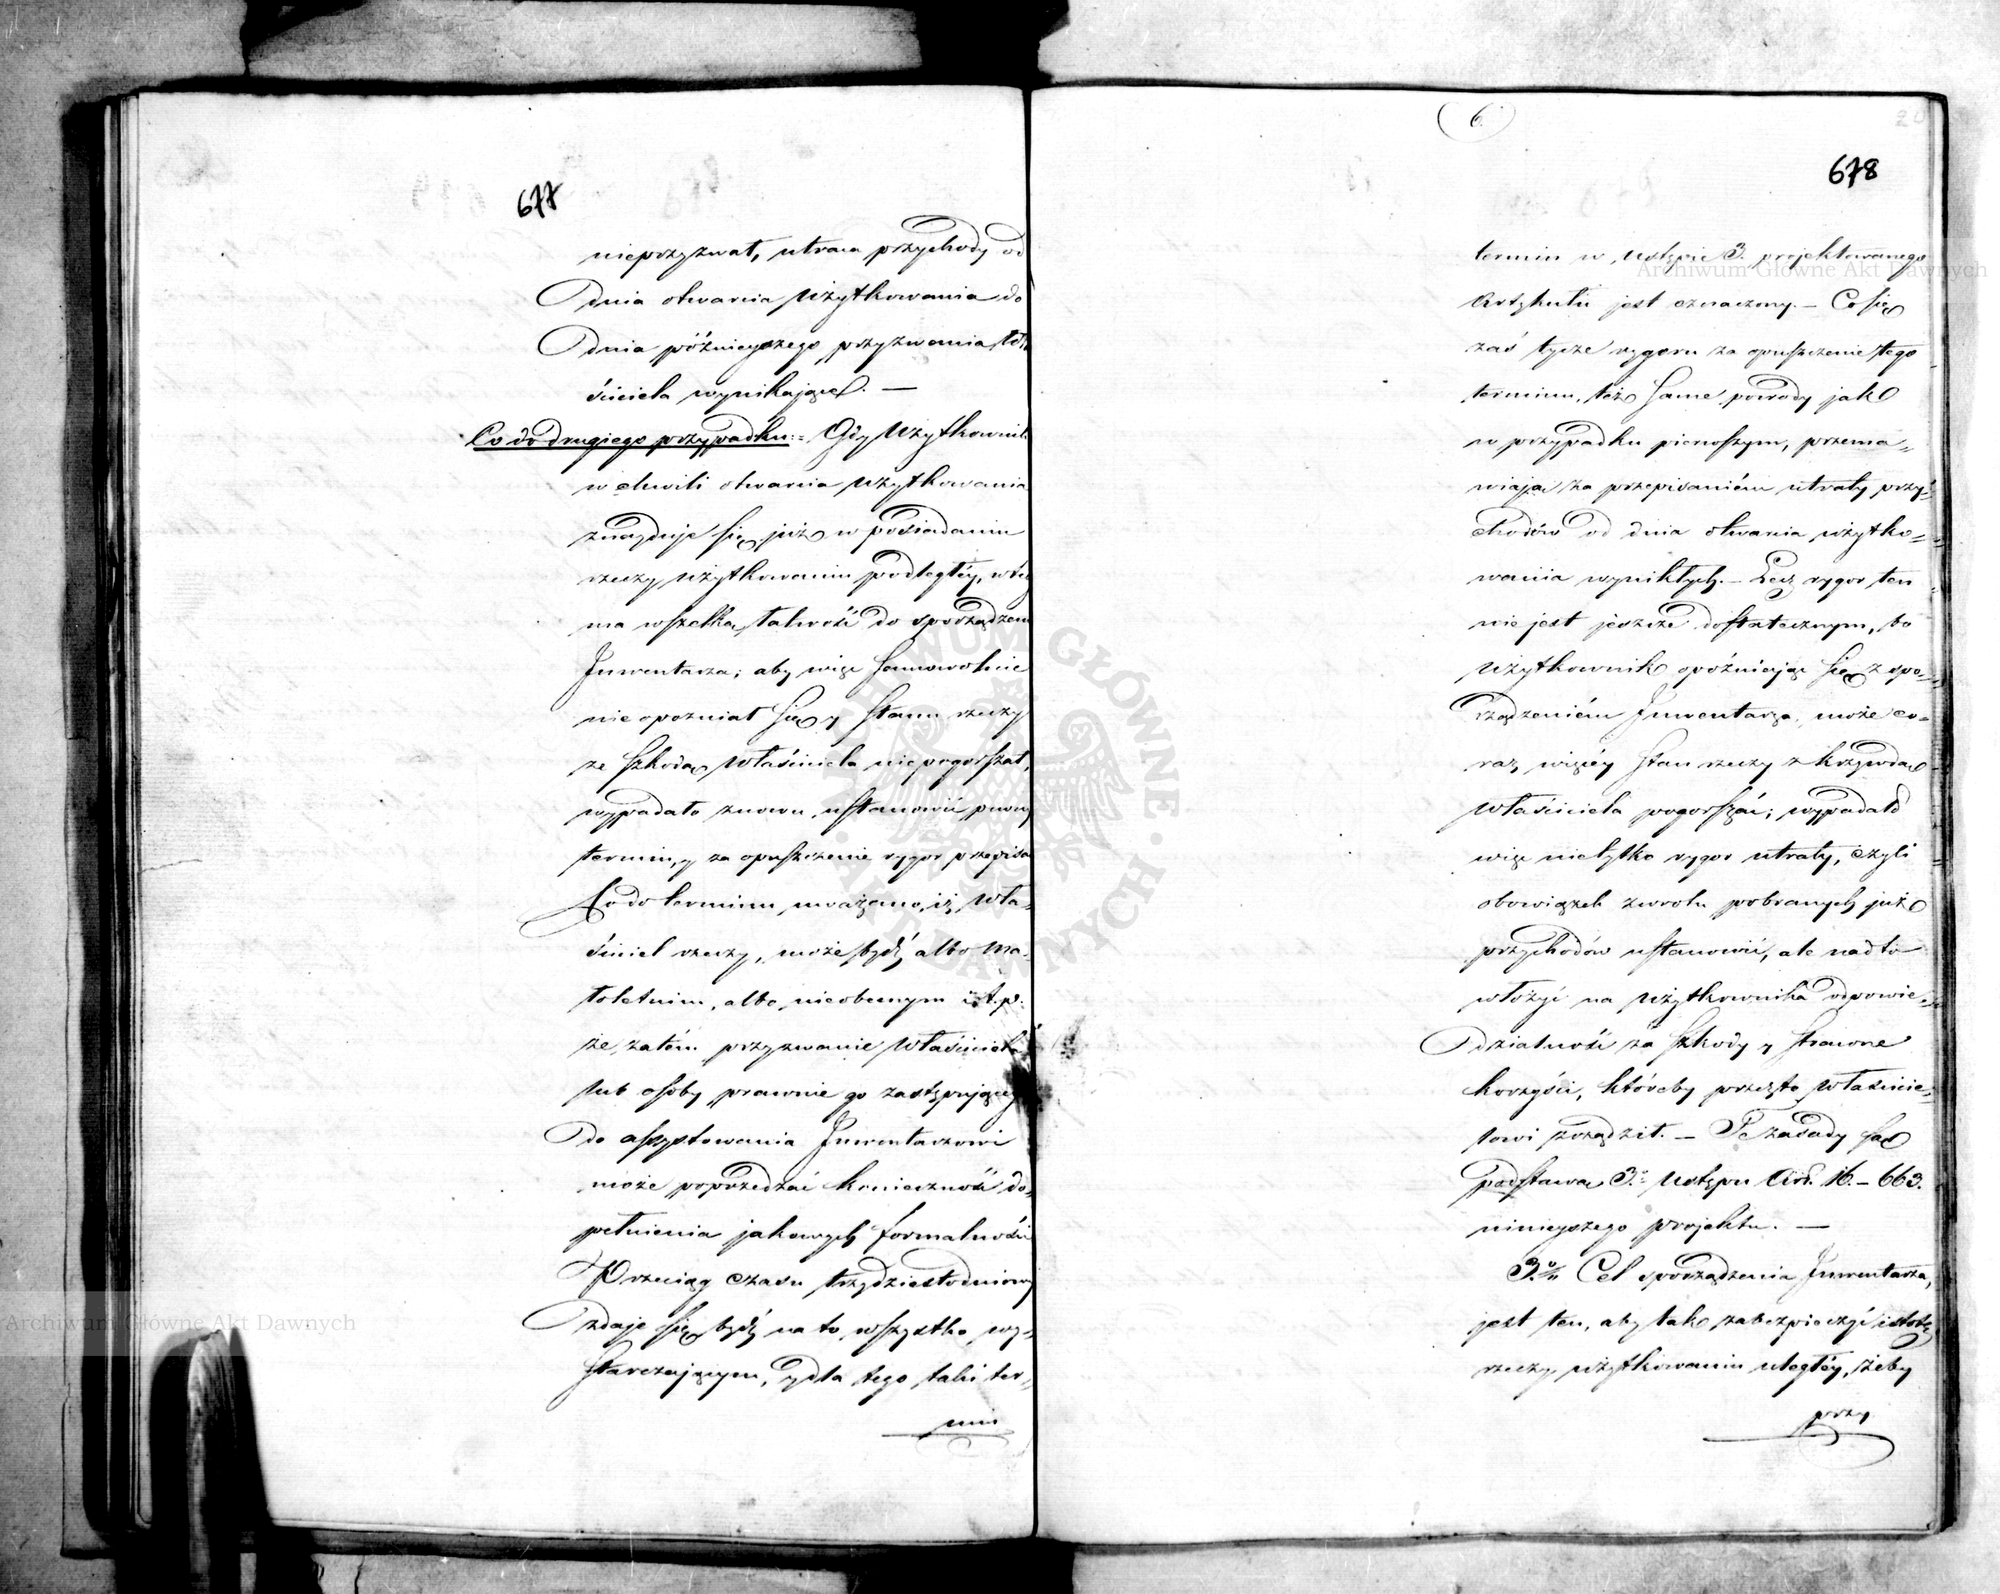 677
nieprzyzwał, utraca przychody od
dnia otwarcia użytkowania do
dnia późnieyszego przyzwania wła
ściciela wynikające. —
Co do drugiego przypadku:= Gdy Użytkownik
w chwili otwarcia użytkowania
znayduje się już w posiadaniu
rzeczy użytkowaniu podległéy, więc
ma wszelką łatwość do sporządzenia
Inwentarza; aby więc samowolnie
nie opoźniał się y stanu rzeczy
ze szkodą Właściciela niepogorszał,
wypadało znowu ustanowić pewny
termin, y za opuszczenie rygor przepisać
Co do terminu, uważano, iż Wła-
ściciel rzeczy, może bydź albo ma-
łoletnim, albo nieobecnym i t. p.
że zatém przyzwanie Właściciela
lub osoby prawnie go zastępującey
do assystowania Inwentarzowi
może poprzedzać konieczność do-
pełnienia jakowych formalności
Przeciąg czasu trzydziestodniowy
zdaje się bydź na to wszystko wy-
starczającym, y dla tego taki ter-
min
6.
678
termin w Ustępie 3. projektowanego
Artykułu jest oznaczony. — Co się
zaś tycze rygoru za opuszczenie tego
terminu, też same powody jak
w przypadku pierwszym, przema-
wiają za przepisaniém utraty przy-
chodów od dnia otwarcia użytko-
wania wynikłych. — Lecz rygor ten
nie jest jeszcze dostatecznym, bo
Użytkownik opóźniając się z spo-
rządzeniém Inwentarza, może co-
raz więcéy stan rzeczy z krzywdą
Właściciela pogorszać; wypadało
więc nietylko rygor utraty, czyli
obowiązek zwrotu pobranych już
przychodów ustanowić, ale nadto
włożyć na Użytkownika odpowie-
dzialność za szkody y stracone
korzyści, któreby przezto Właścicie-
lowi zrządził. — Te zasady są
podstawą 3.º Ustępu Art. 16. — 663.
ninieyszego projektu. —
3.º Cel sporządzenia Inwentarza,
jest ten, aby tak zabezpieczyć istotę
rzeczy użytkowaniu uległéy, żeby
przy
Archiwum Główne Akt Dawnych
Archiwum Główne Akt Dawnych
ARCHIWUM GŁÓWNE AKT DAWNYCH